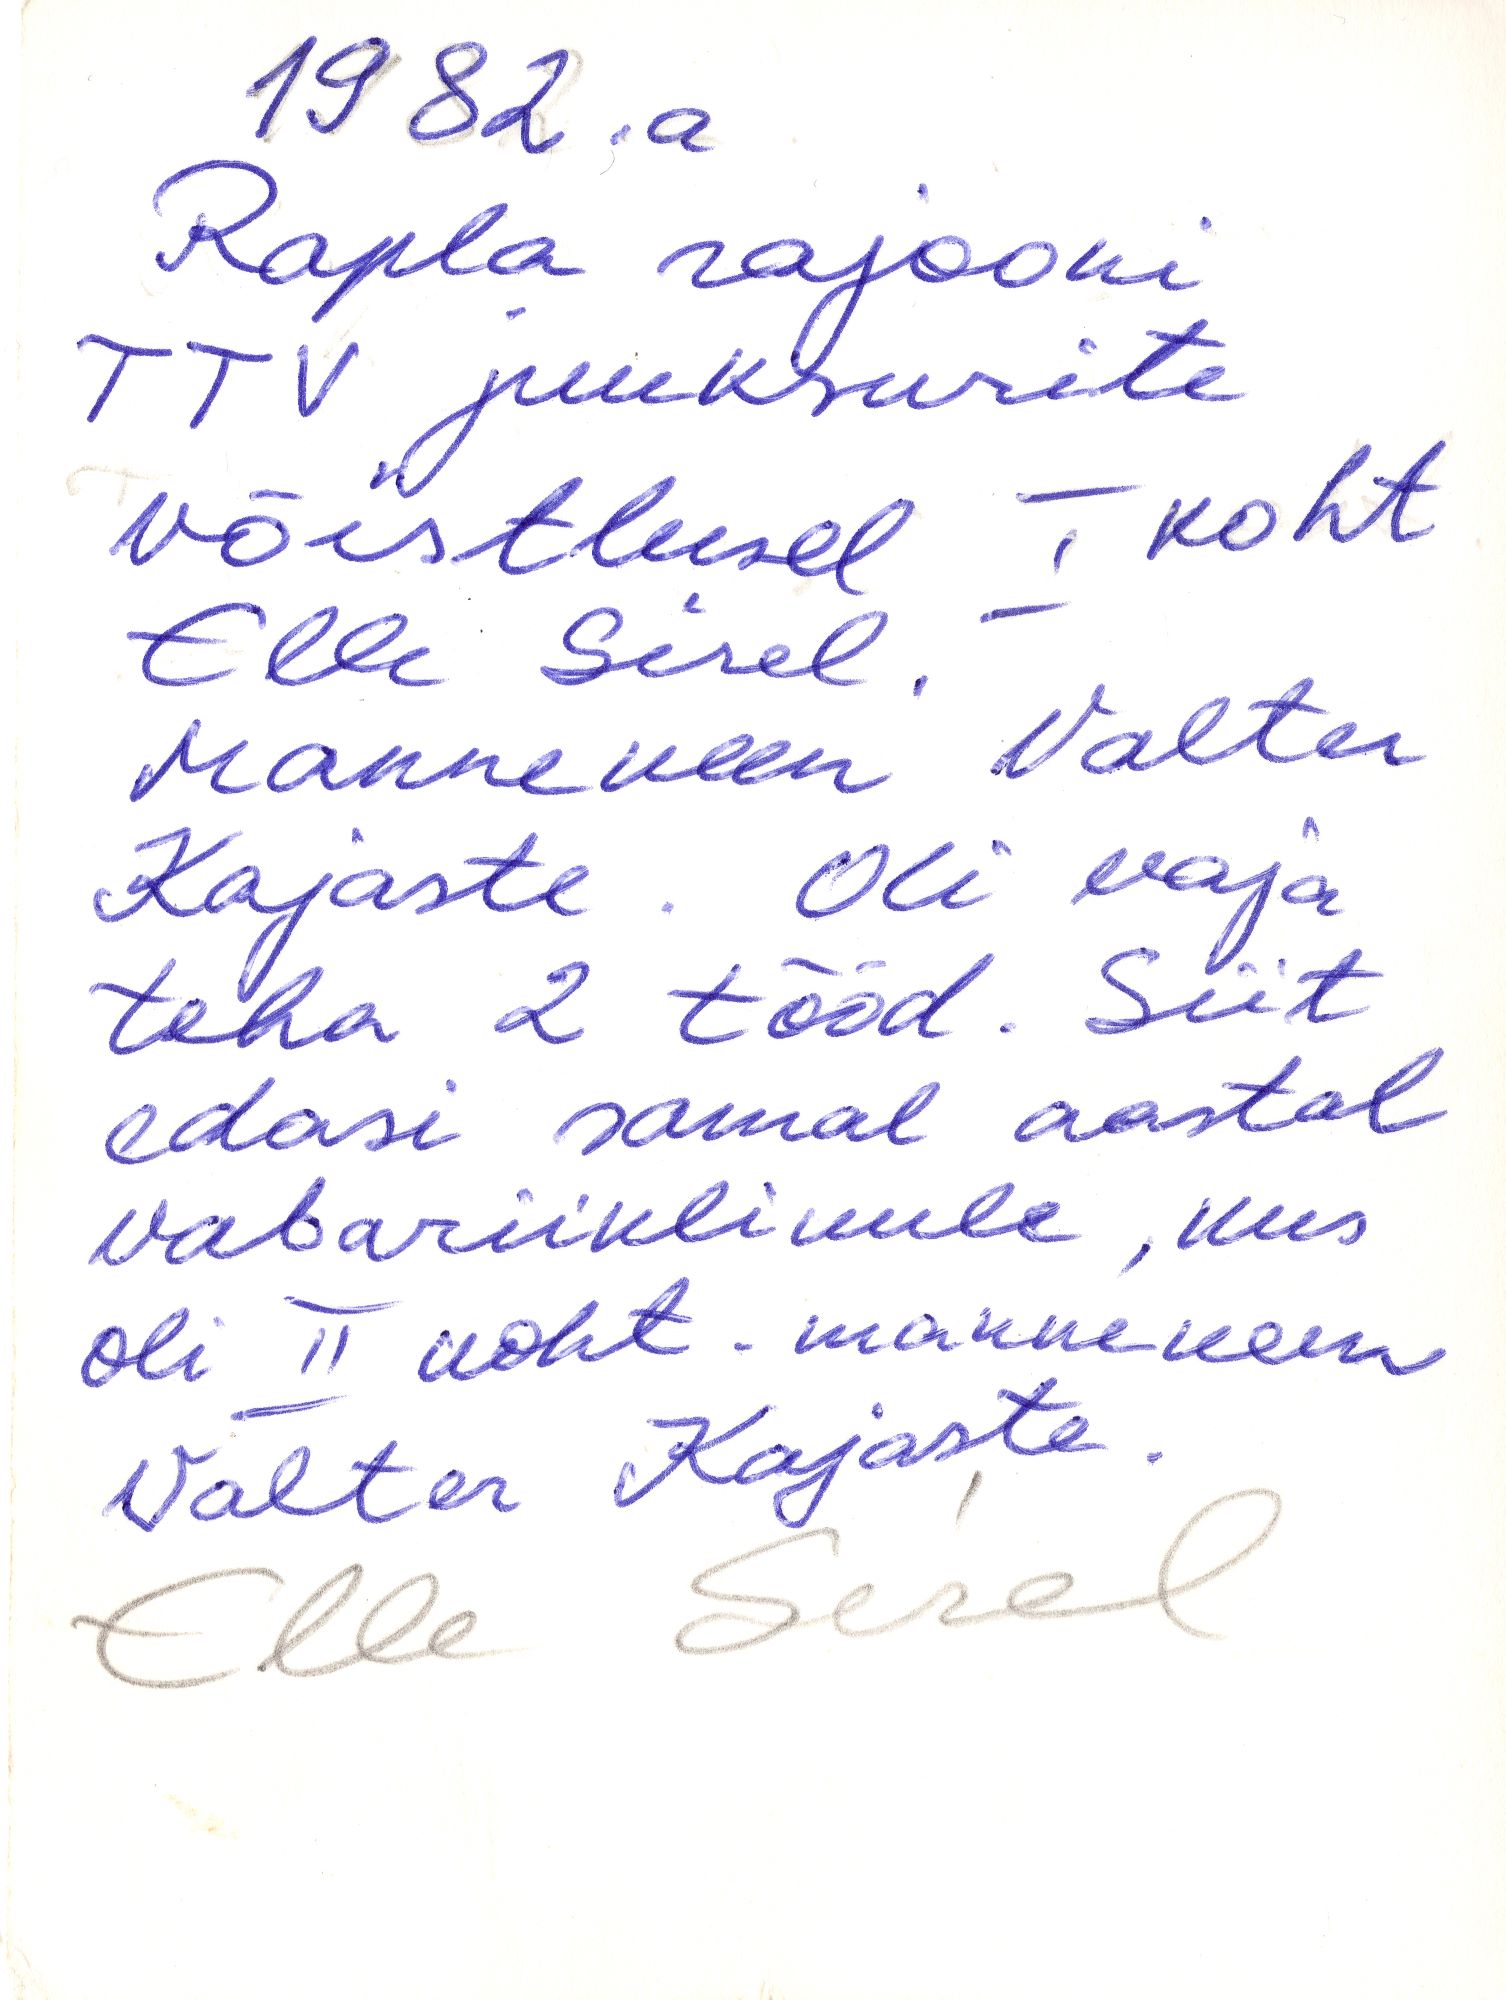 1982.a
Rapla rajooni
TTV juuksurite
võistlusel I koht
Elle Sirel.
Mannekeen Valter
Kajaste. Oli vaja
teha 2 tööd. Siit
edasi samal aastal
vabariiklikule, kus
oli II koht. mannekeen
Valter Kajaste.
Elle Sirel